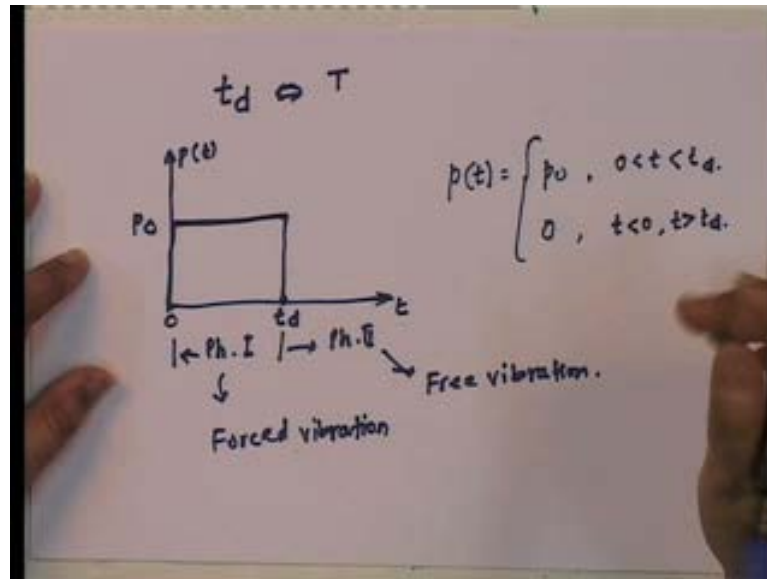 td ⇔ T
p(t)
p0
0 td t
|← Ph. I |→ Ph. II
Forced vibration
Free vibration.
p(t) = { p0 , 0<t<td.
0 , t<0, t>td.